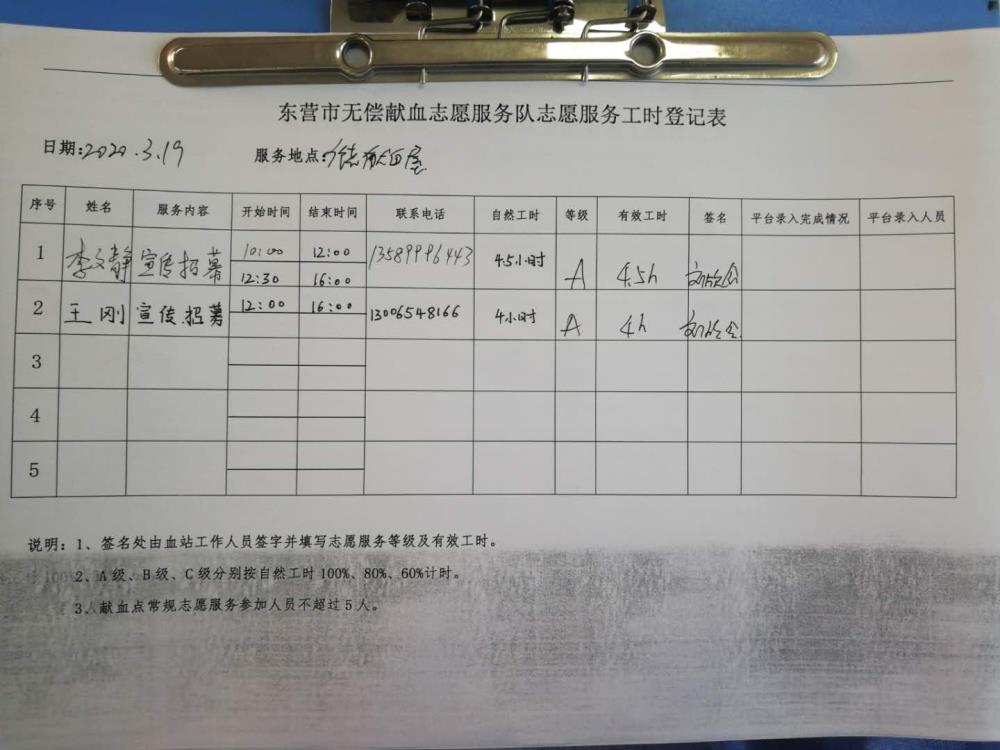 东营市无偿献血志愿服务队志愿服务工时登记表
日期:2020.3.19 服务地点: 献血屋
序号 姓名 服务内容 开始时间 结束时间 联系电话 自然工时 等级 有效工时 签名 平台录入完成情况 平台录入人员
1 李文静 宣传招募 10:00 12:00 13589996443 4.5小时 A 4.5h
12:30 16:00
2 王刚 宣传招募 12:00 16:00 13006548166 4小时 A 4h
3
4
5
说明：1、签名处由血站工作人员签字并填写志愿服务等级及有效工时。
2、A级、B级、C级分别按自然工时100%、80%、60%计时。
3、献血点常规志愿服务参加人员不超过5人。